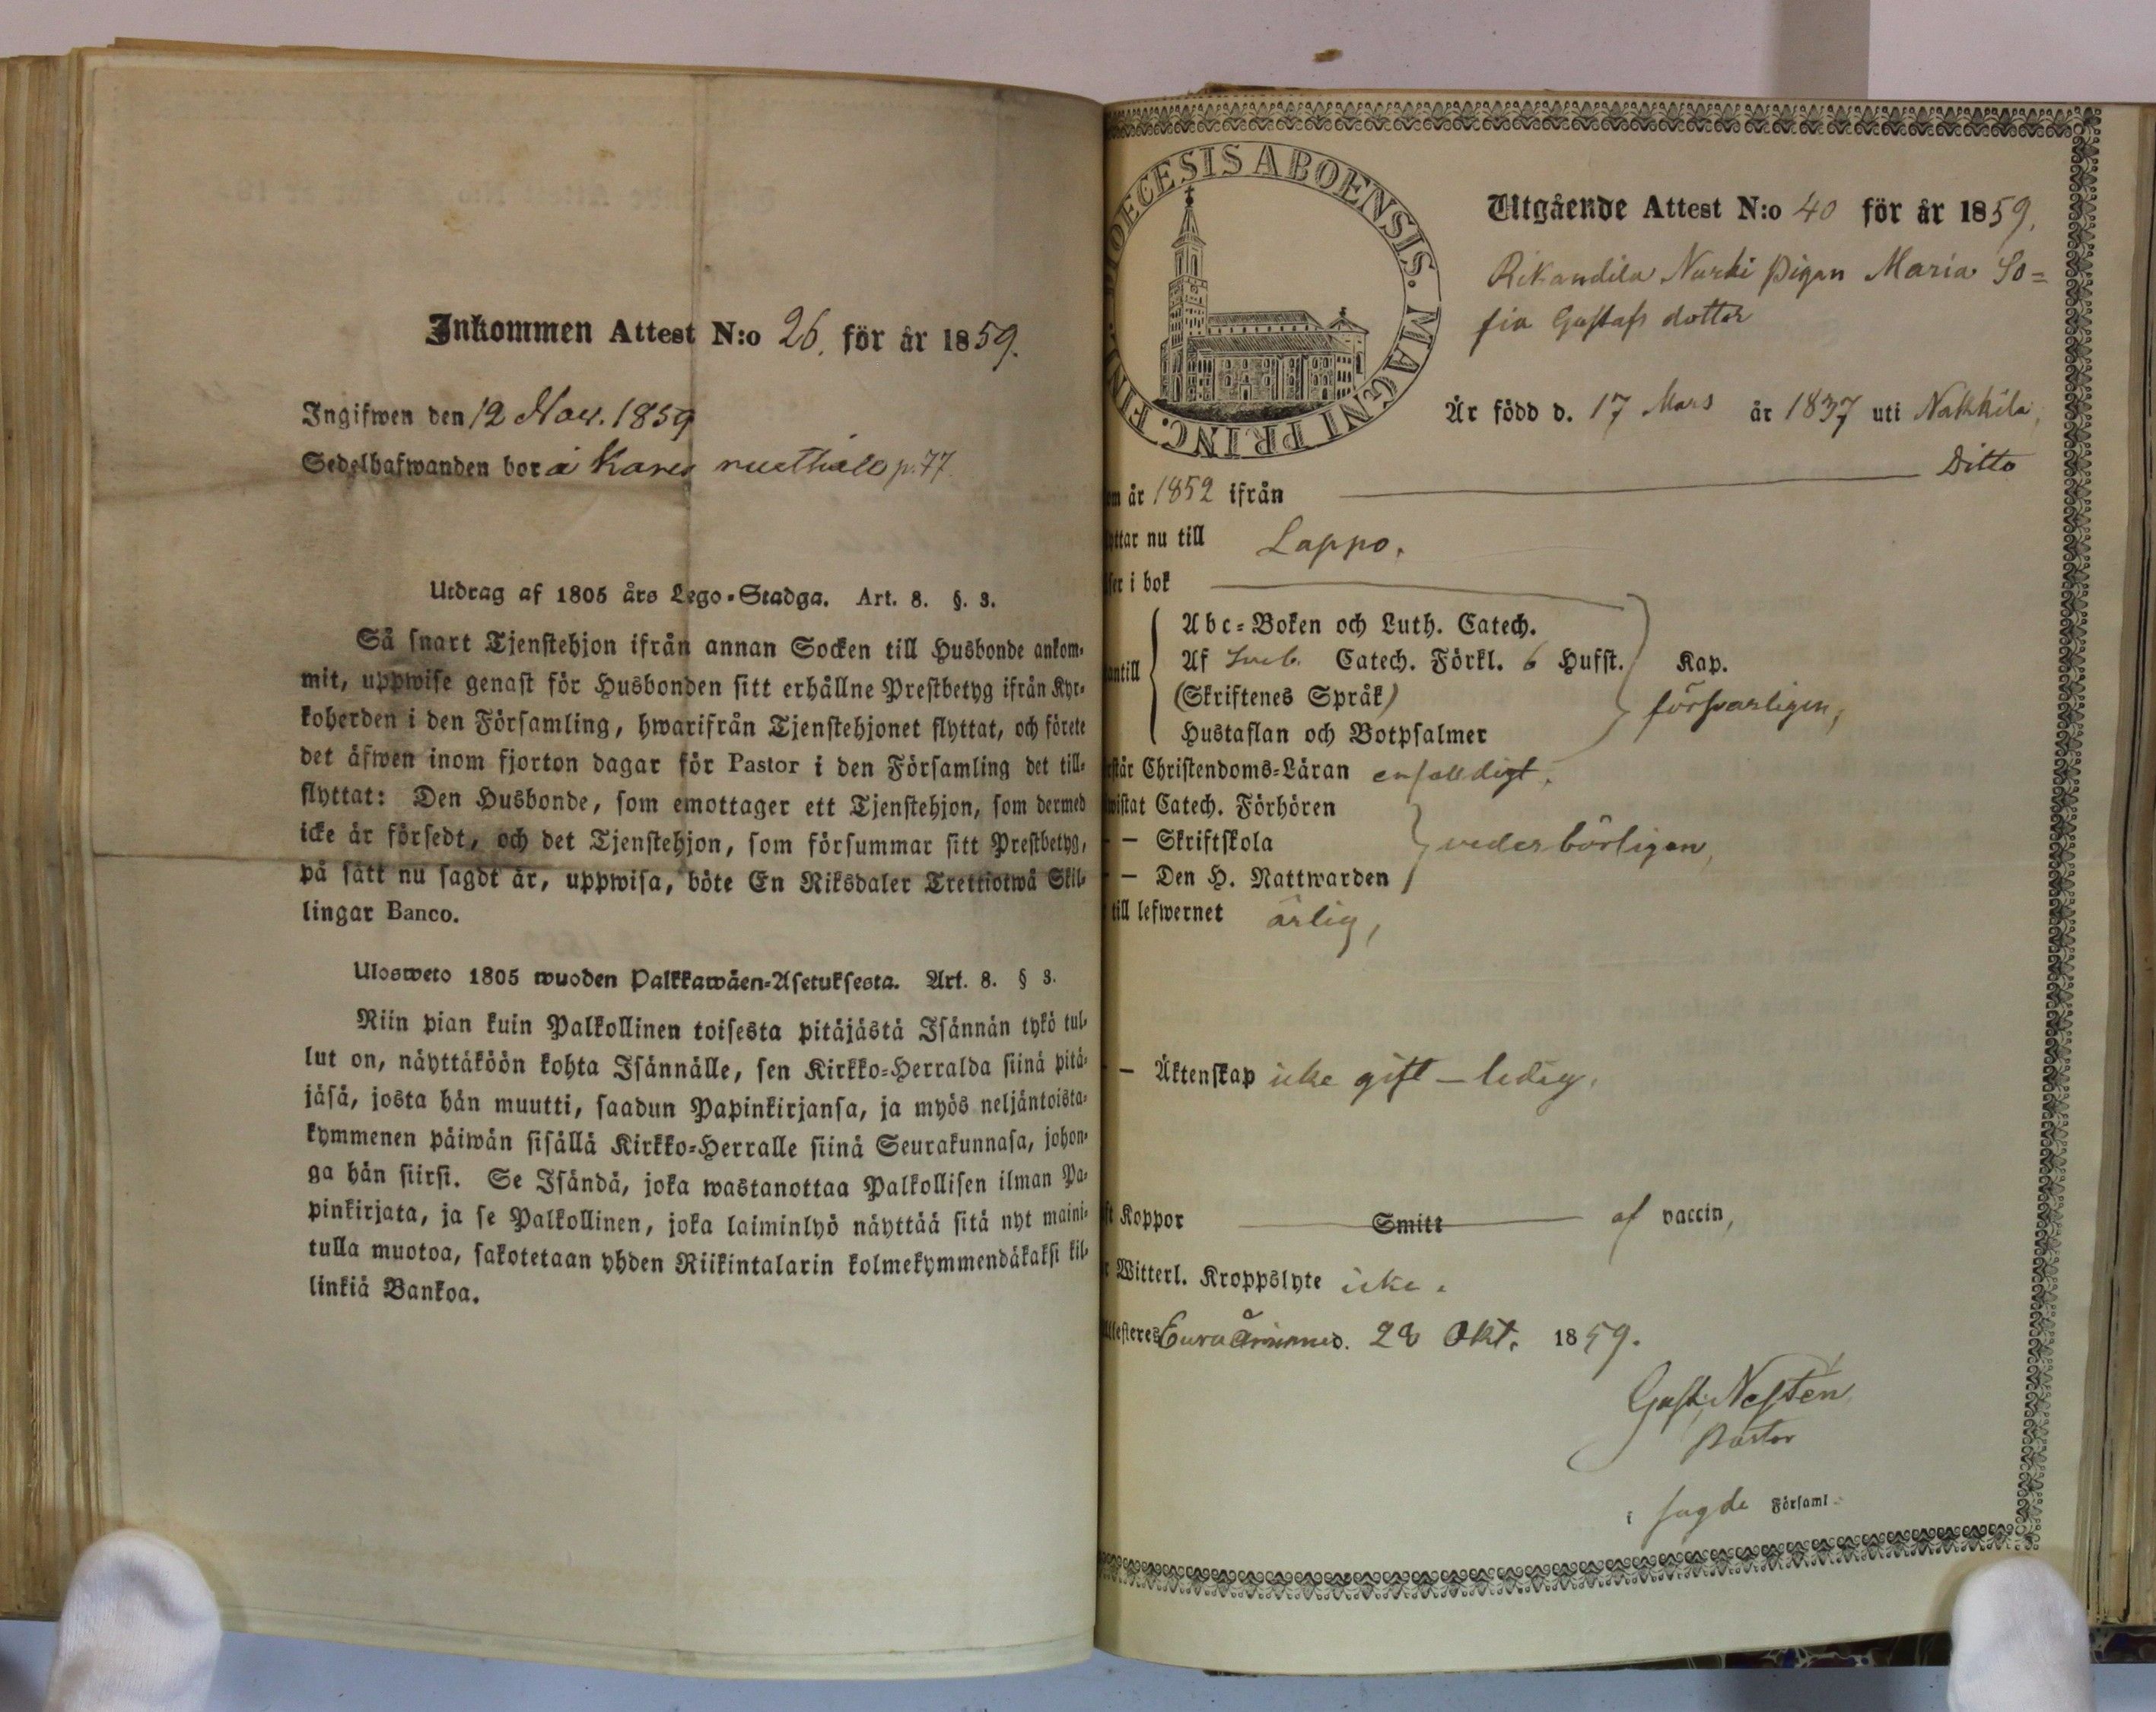 Inkommen Attest N:o 26. för år 1859.
Ingifwen den 12 Nov. 1859
Sedelhafwanden bor å Kares rusthåll p. 77.
Utdrag af 1805 års Lego-Stadga. Art. 8. §. 3.
Så snart Tjenstehjon ifrån annan Socken till Husbonde ankom-
mit, uppwise genast för Husbonden sitt erhållne Prestbetyg ifrån Kyr-
koherden i den Församling, hwarifrån Tjenstehjonet flyttat, och förete
det äfwen inom fjorton dagar för Pastor i den Församling det till-
flyttat: Den Husbonde, som emottager ett Tjenstehjon, som dermed
icke är försedt, och det Tjenstehjon, som försummar sitt Prestbetyg,
på sätt nu sagdt är, uppwisa, böte En Riksdaler Trettiotwå Skil-
lingar Banco.
Ulosweto 1805 wuoden Palkkawäen-Asetuksesta. Art. 8. § 3.
Niin pian kuin Palkollinen toisesta pitäjästä Isännän tykö tul-
lut on, näyttäköön kohta Isännälle, sen Kirkko-Herralda siinä pitä-
jäsä, josta hän muutti, saadun Papinkirjansa, ja myös neljäntoista-
kymmenen päiwän sisällä Kirkko-Herralle siinä Seurakunnasa, johon-
ga hän siirsi. Se Isändä, joka wastanottaa Palkollisen ilman Pa-
pinkirjata, ja se Palkollinen, joka laiminlyö näyttää sitä nyt maini-
tulla muotoa, sakotetaan yhden Riikintalarin kolmekymmendäkaksi kil-
linkiä Bankoa.
DIOECESIS ABOENSIS. MAGNI PRINC. FIN
Utgående Attest N:o 40 för år 1859.
Rikandila Nurki Pigan Maria So=
fia Gustafs dotter
Är född d. 17 Mars år 1837 uti Nakkila,
om år 1852 ifrån Ditto
yttar nu till Lappo.
ser i bok
Abc-Boken och Luth. Catech.
antill Af Sveb. Catech. Förkl. 6 Hufst. Kap.
(Skriftenes Språk) försvarligen,
Hustaflan och Botpsalmer
står Christendoms-Läran enfalldigt.
wistat Catech. Förhören
— Skriftskola vederbörligen,
— Den H. Nattwarden
till lefwernet ärlig,
— Äktenskap icke gift – ledig.
ft Koppor Smitt af vaccin,
r Witterl. Kroppslyte icke.
Attesteres Eura Åminne d. 28 Okt. 1859.
Gust. Nestén
Pastor
i sagde Församl.